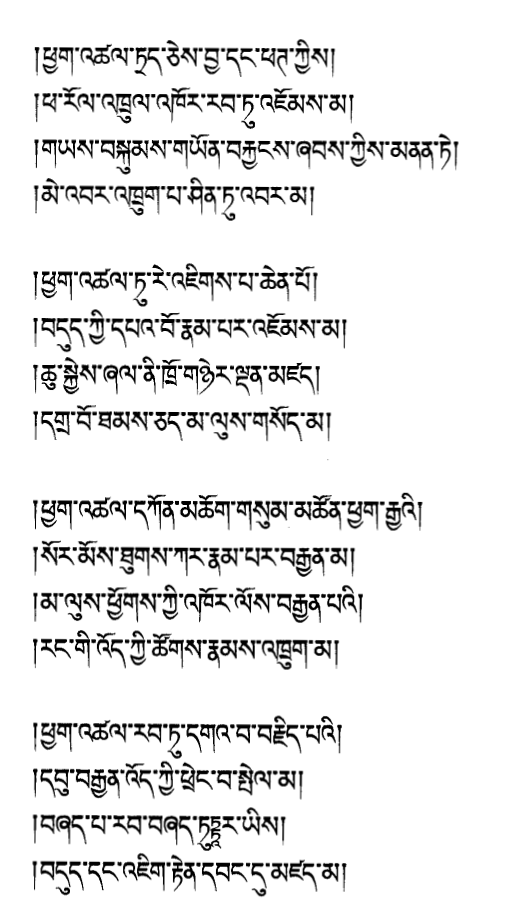 །ཕྱག་འཚལ་ཏྲད་ཅེས་བྱ་དང་ཕཊ་ཀྱིས།
།ཕ་རོལ་འཁྲུལ་འཁོར་རབ་ཏུ་འཇོམས་མ།
།གཡས་བསྐུམས་གཡོན་བརྐྱངས་ཞབས་ཀྱིས་མནན་ཏེ།
།མེ་འབར་འཁྲུག་པ་ཤིན་ཏུ་འབར་མ།
།ཕྱག་འཚལ་ཏུ་རེ་འཇིགས་པ་ཆེན་པོ།
།བདུད་ཀྱི་དཔའ་བོ་རྣམ་པར་འཇོམས་མ།
།ཆུ་སྐྱེས་ཞལ་ནི་ཁྲོ་གཉེར་ལྡན་མཛད།
།དགྲ་བོ་ཐམས་ཅད་མ་ལུས་གསོད་མ།
།ཕྱག་འཚལ་དཀོན་མཆོག་གསུམ་མཚོན་ཕྱག་རྒྱའི།
།སོར་མོས་ཐུགས་ཀར་རྣམ་པར་བརྒྱན་མ།
།མ་ལུས་ཕྱོགས་ཀྱི་འཁོར་ལོས་བརྒྱན་པའི།
།རང་གི་འོད་ཀྱི་ཚོགས་རྣམས་འཁྲུག་མ།
།ཕྱག་འཚལ་རབ་ཏུ་དགའ་བ་བརྗིད་པའི།
།དབུ་བརྒྱན་འོད་ཀྱི་ཕྲེང་བ་སྤེལ་མ།
།བཞད་པ་རབ་བཞད་ཏུཏྟཱར་ཡིས།
།བདུད་དང་འཇིག་རྟེན་དབང་དུ་མཛད་མ།